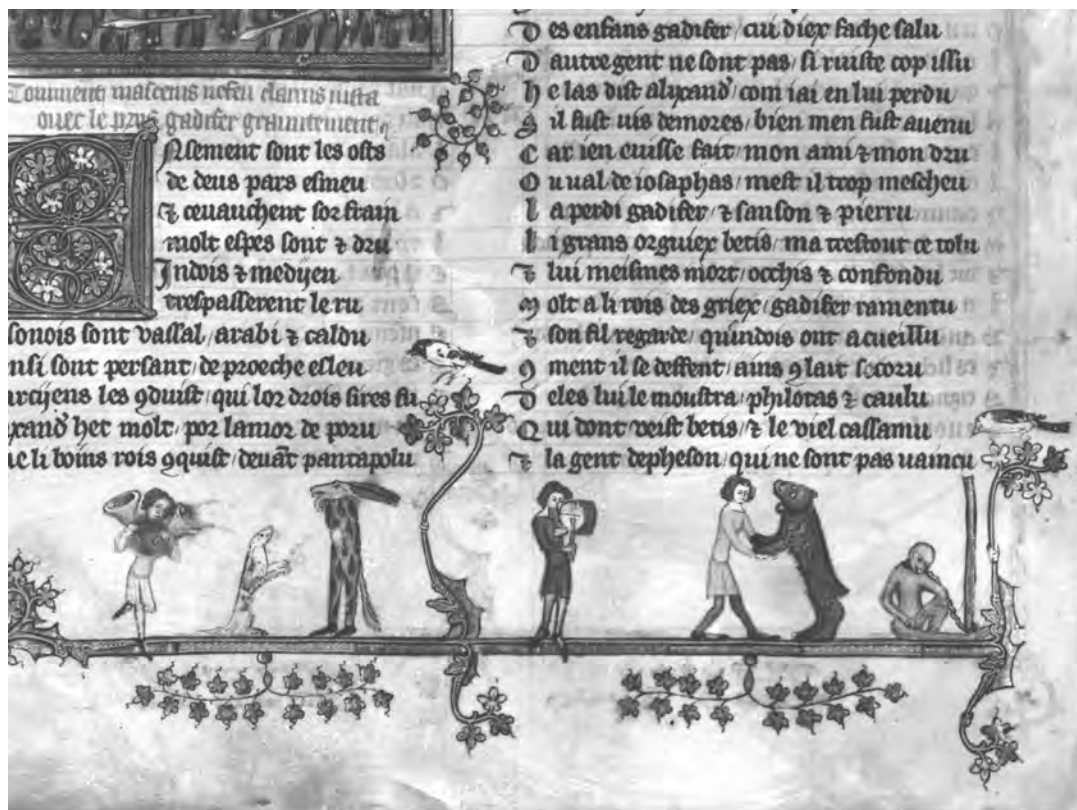 Comment mascenis nefeu clarius iusta
ouec le prus gadifer grauntement
Nsement sont les osts
de deus pars esmeu
⁊ ceuauchent sor frain
molt espes sont ⁊ dru
Indois ⁊ medijen
trespasserent le ru
sonois sont vassal / arabi ⁊ caldu
nsi sont persant / de proeche esleu
rcijens les ꝯduist / qui lor drois sires fu
xand' het molt / por lamor de poru
ue li boins rois ꝯquist / deuāt pantapolu
D es enfans gadifer / cui diex fache salu
D autre gent ne sont pas / si ruiste cop issu
h e las dist alixand' / com iai en lui perdu
S il fust uis demores / bien men fust auenu
C ar ien euisse fait / mon ami ⁊ mon dru
O u ual de iosaphas / mest il trop mescheu
l a perdi gadifer / ⁊ sanson ⁊ pierru
l i grans orguiex betis / ma trestout ce tolu
⁊ lui meismes mort / occhis ⁊ confondu
M olt a li rois des griex / gadifer ramentu
⁊ son fil regarde / quindois ont acueillu
ꝯ ment il se deffent / ains ꝯ lait secoru
D eles lui le moustra / philotas ⁊ caulu
Q ui dont veist betis / ⁊ le viel cassamu
⁊ la gent depheson / qui ne sont pas uaincu